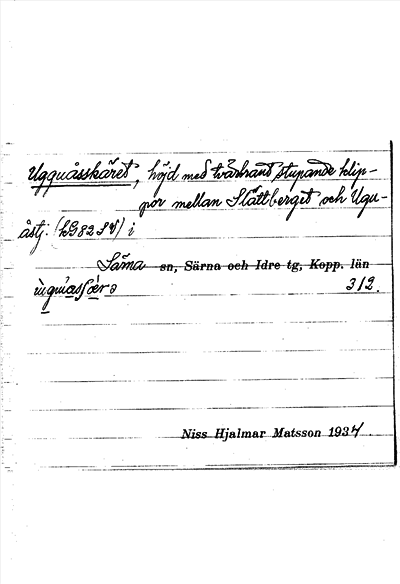 Ugguåsskäret, höjd med tvärbrant stupande klip-
por mellan Slättberget och Ugu-
åstj. (kG82SV) i
Särna sn, Särna och Idre tg, Kopp. län
312.
Niss Hjalmar Matsson 1934.